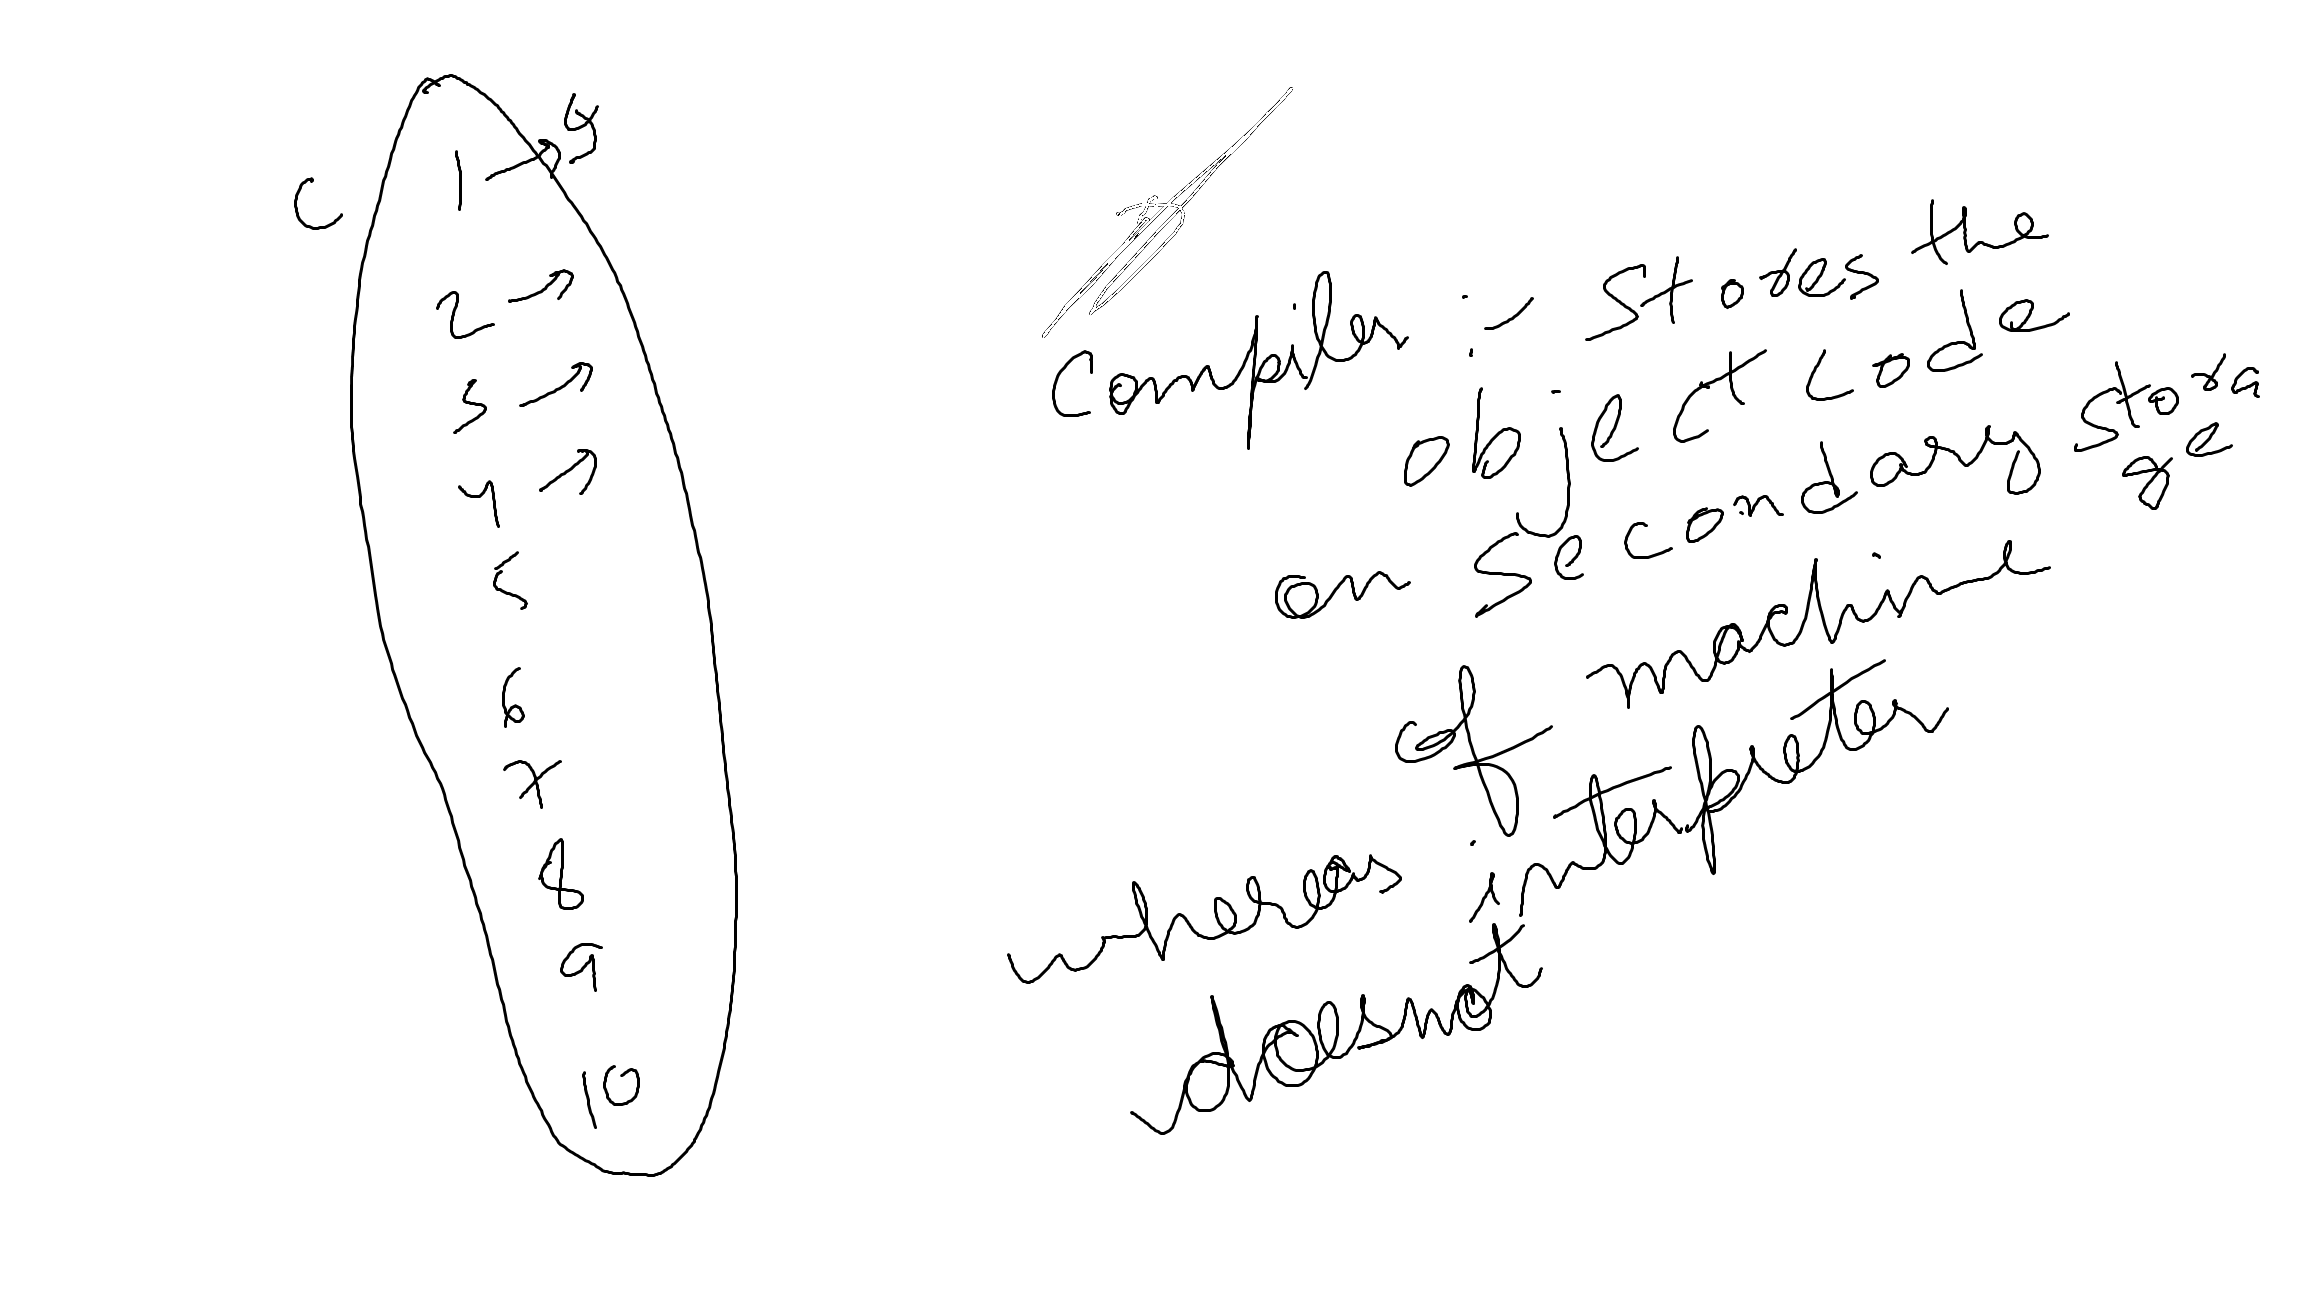 C
1 → 5
2 →
3 →
4 →
5
6
7
8
9
10
Compiler :- Stores the
object code
on Secondary storage
of machine
whereas interpreter
does not